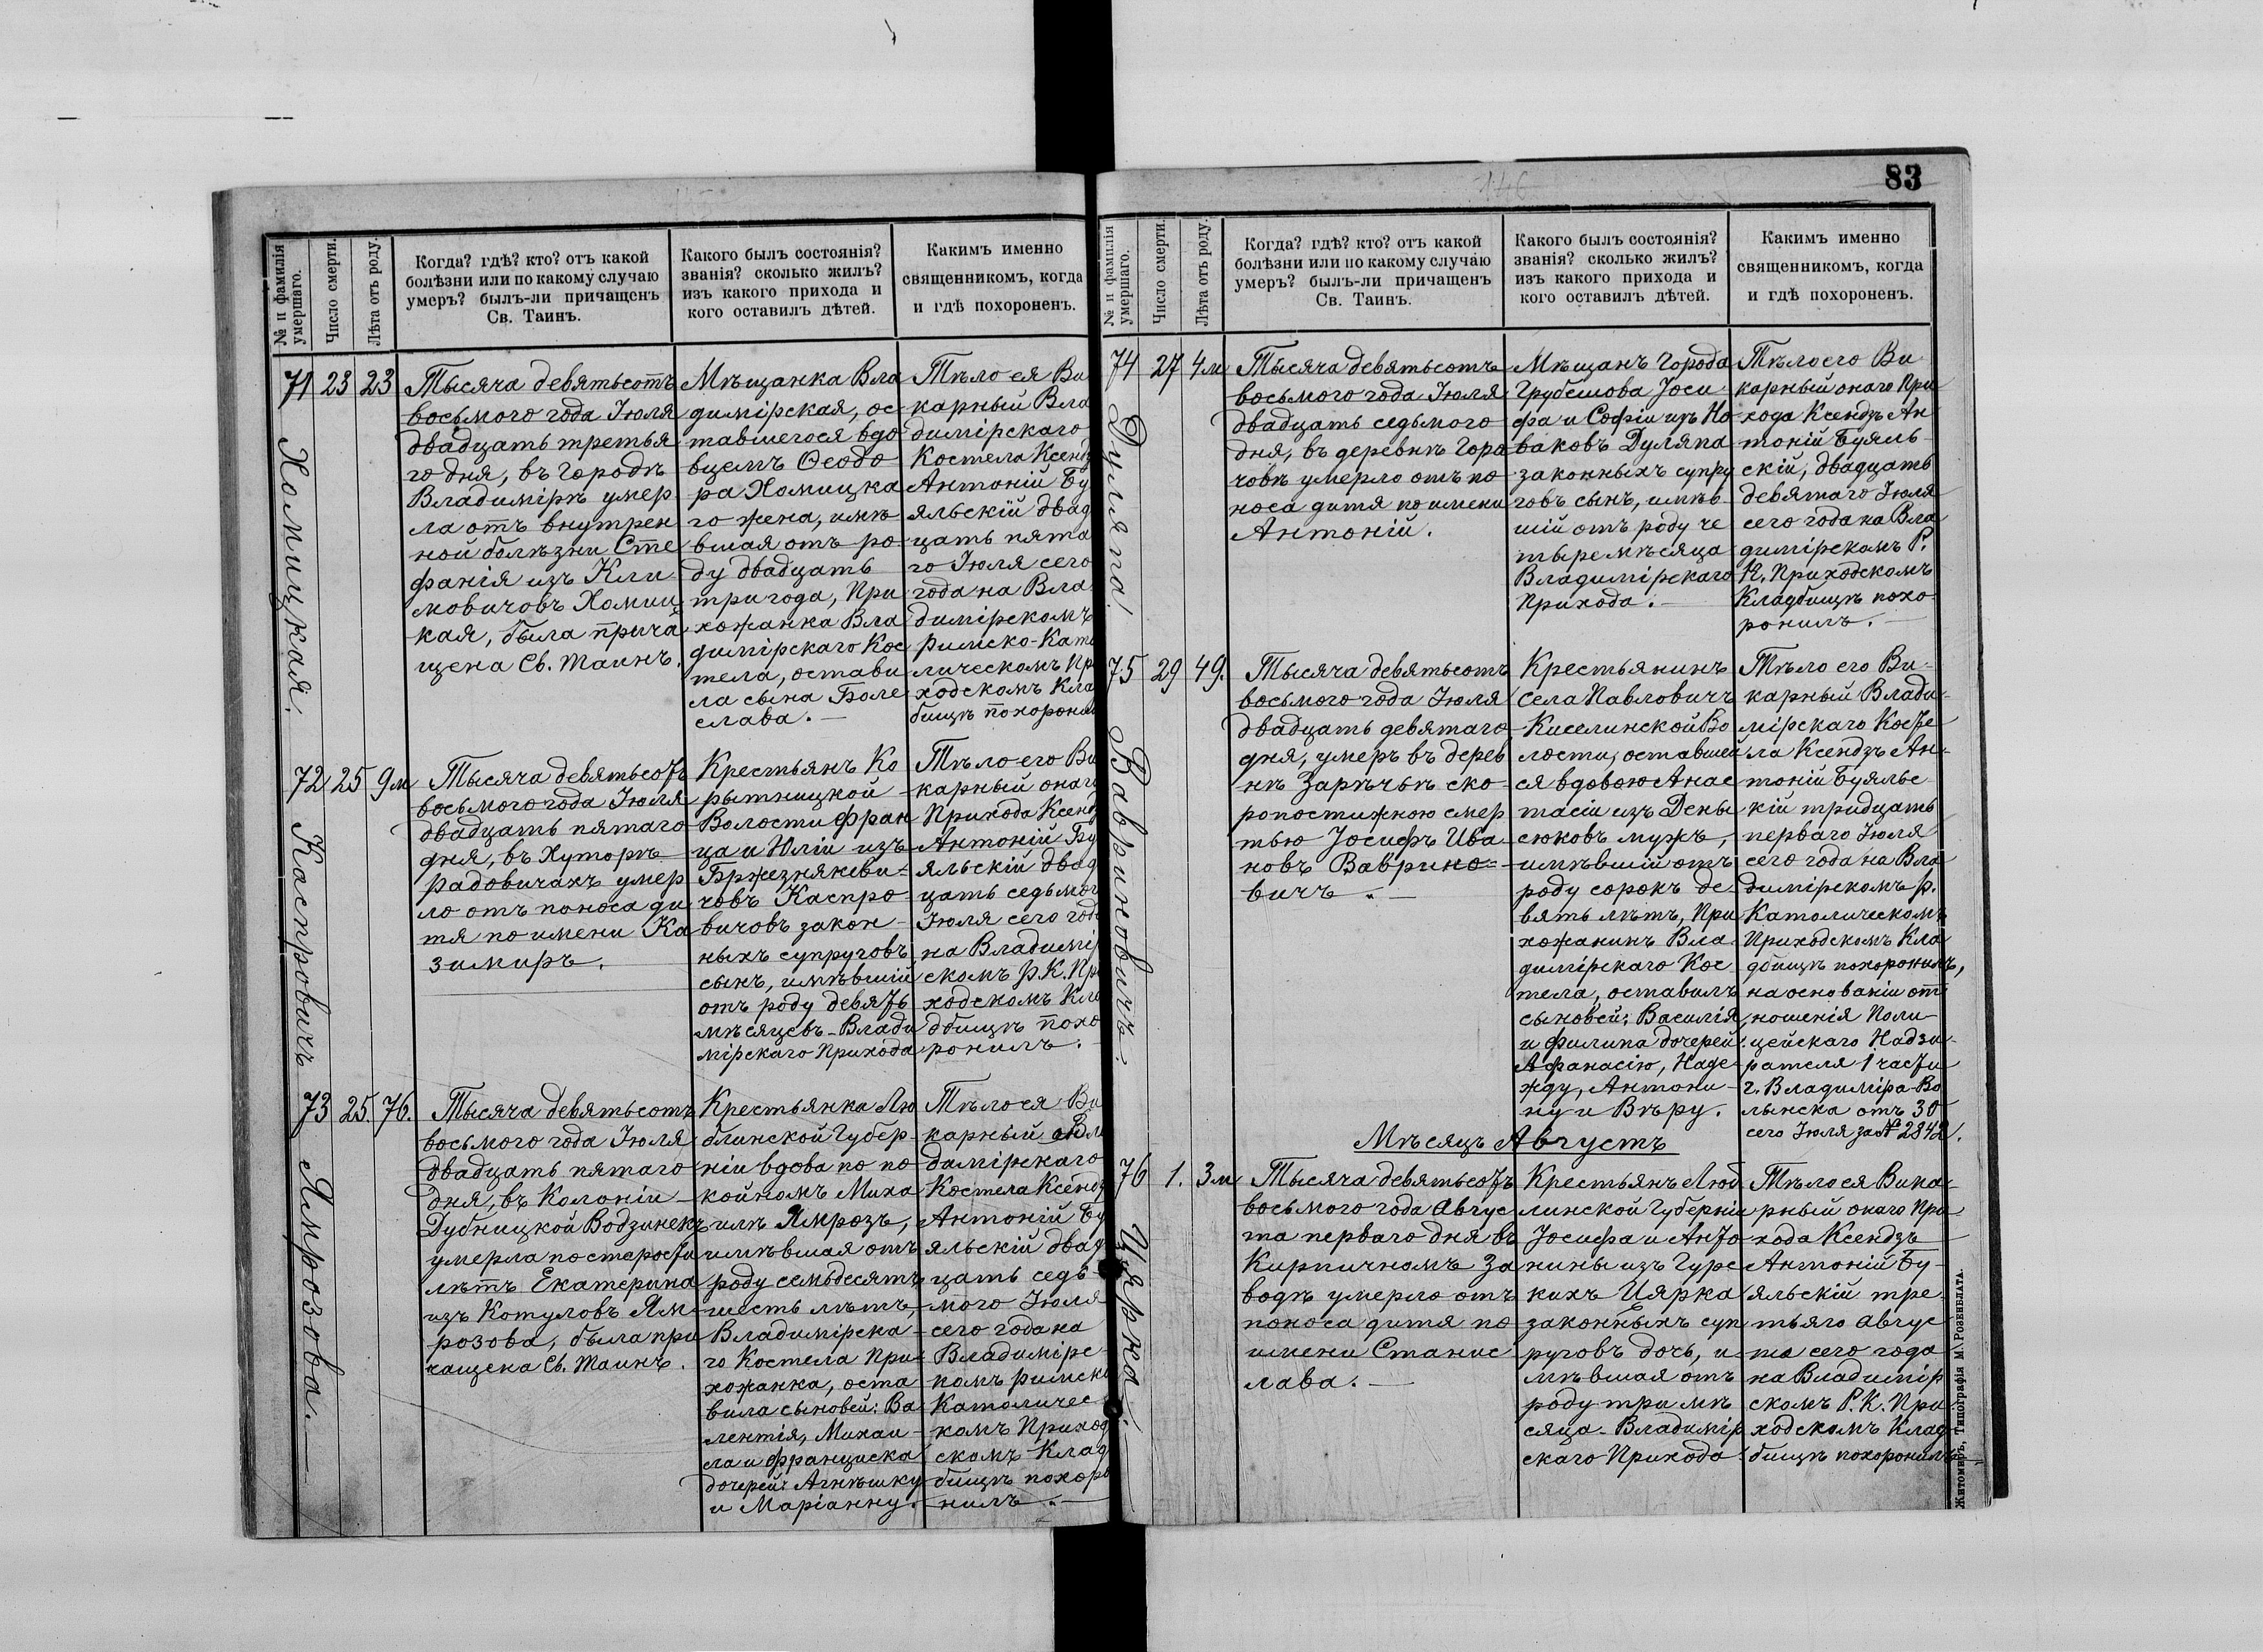 83
№ и фамилія
умершаго.
Число смерти.
Лѣта отъ роду.
Когда? гдѣ? кто? отъ какой
болѣзни или по какому случаю
умеръ? былъ-ли причащенъ
Св. Таинъ.
Какого былъ состоянія?
званія? сколько жилъ?
изъ какого прихода и
кого оставилъ дѣтей.
Каким именно
священникомъ, когда
и гдѣ похороненъ.
71
Хомицкая.
23
23
Тысяча девятьсотъ
восьмого года Іюля
двадцать третья
го дня, въ городѣ
Владимірѣ умер
ла отъ внутрен
ной болѣзни Сте
фанія изъ Кли
мовичовъ Хомиц
кая, была прича
щена Св. Таинъ.
Мѣщанка Вла
димірская, ос
тавшегося вдо
вцемъ Ѳеодо
ра Хомицка
го жена, имѣ
вшая отъ ро
ду двадцать
три года, При
хожанка Вла
димірскаго Кос
тела, остави
ла сына Боле
слава.
Тѣло ея Ви
карный Вла
димірскаго
Костела Ксендз
Антоній Бу
яльскій двад
цать пята
го Іюля сего
года на Вла
димірскомъ
Римско-Като
лическомъ При
ходскомъ Кла
бищѣ похоронил
72
Каспровичъ
25
9м
Тысяча девятьсотъ
восьмого года Іюля
двадцать пятаго
дня, въ Хуторѣ
Радовичахъ умер
ло отъ поноса ди
тя по имени Ка
зимиръ.
Крестьянъ Ко
рытницкой
Волости Фран
ца и Юліи изъ
Бржезнякеви-
човъ Каспро
вичовъ закон-
ныхъ супруговъ
сынъ, имѣвшій
отъ роду девять
мѣсяцевъ-Влади
мірскаго Прихода
Тѣло его Ви
карный онаго
Прихода Ксендз
Антоній Бу
яльскій двад
цать седьмог
Іюля сего года
на Владимір
скомъ Р.К. При
ходскомъ Кла
дбищѣ похо
ронилъ.
73
Ямрозова.
25.
76.
Тысяча девятьсотъ
восьмого года Іюля
двадцать пятаго
дня, въ Колоніи
Дубницкой Водзинекъ
умерла по старости
лѣтъ Екатерина
изъ Котуловъ Ям-
розова, была при
чащена Св. Таинъ.
Крестьянка Лю
блинской Губер-
ніи вдова по по
койномъ Миха
илѣ Ямрозъ,
имѣвшая отъ
роду семьдесятъ
шесть лѣтъ,
Владимірска-
го Костела При-
хожанка, оста
вила сыновей: Ва
лентія, Михаи-
ла и Франциска
дочерей: Агнѣшку
и Маріанну.
Тѣло ея Ви
карный Вла
димірскаго
Костела Ксендз
Антоній Бу
яльскій двад
цать седь-
мого Іюля
сего года на
Владимірс-
комъ Римско
Католичес-
комъ Приход
скомъ Клад
бищѣ похоро
нилъ.
№ и фамилія
умершаго.
Число смерти.
Лѣта отъ роду.
Когда? гдѣ? кто? отъ какой
болѣзни или по какому случаю
умеръ? былъ-ли причащенъ
Св. Таинъ.
Какого былъ состоянія?
званія? сколько жилъ?
изъ какого прихода и
кого оставилъ дѣтей.
Какимъ именно
священникомъ, когда
и гдѣ похороненъ.
74
Дуляпа.
27
4м
Тысяча девятьсотъ
восьмого года Іюля
двадцать седьмого
дня, въ деревнѣ Горо
ховѣ умерло отъ по
носа дитя по имени
Антоній.
Мѣщанъ Города
Грубешова Іоси
фа и Софіи изъ Но
ваковъ Дуляпа
законныхъ супру
говъ сынъ, имѣв
шій отъ роду че
тыре мѣсяца
Владимірскаго
Прихода.
Тѣло его Ви
карный онаго При
хода Ксендзъ Ан
тоній Буяль-
скій, двадцать
девятаго Іюля
сего года на Вла
димірскомъ Р.
К. Приходскомъ
Кладбищѣ похо
ронилъ.
75
Вавриновичъ.
29
49.
Тысяча девятьсотъ
восьмого года Іюля
двадцать девятаго
дня, умеръ въ дерев
нѣ Зарѣчьѣ ско-
ропостижною смер
тью Іосифъ Ива
новъ Ваврино=
вичъ.
Крестьянинъ
села Павловичъ
Киселинской Во
лости, оставшей
ся вдовою Анас
тасіи изъ Дены
сюковъ мужъ,
имѣвшій отъ
роду сорокъ де
вять лѣтъ, При
хожанинъ Вла
димірскаго Кос
тела, оставилъ
сыновей: Василія
и Филипа дочерей:
Афанасію, Наде
жду, Антони-
ну и Вѣру.
Тѣло его Ви-
карный Влади-
мірскаго Косте
ла Ксендзъ Ан-
тоній Буяльс
кій тридцать
перваго Іюля
сего года на Вла
димірскомъ Р.
Католическомъ
Приходскомъ Кла
дбищѣ похоронилъ,
на основаніи от
ношенія Поли-
цейскаго Надзи-
рателя 1 части
г. Владиміра-Во
лынска отъ 30
сего Іюля за № 2842.
Мѣсяцъ Августъ
76
Цярка.
1.
3м
Тысяча девятьсотъ
восьмого года Авгус
та перваго дня въ
Кирпичномъ За
водѣ умерло отъ
поноса дитя по
имени Станис
лава.
Крестьянъ Люб
линской Губерніи
Іосифа и Анто
нины изъ Гурс
кихъ Цярка
законныхъ суп
руговъ дочь, и
мѣвшая отъ
роду три мѣ
сяца-Владимір
скаго Прихода
Тѣло ея Вика-
рный онаго При-
хода Ксендзъ
Антоній Бу-
яльскій тре
тьяго Авгус
та сего года
на Владимір
скомъ Р.К. При
ходскомъ Клад
бищѣ похоронилъ
Житомиръ, Типографія М. Розенблата.